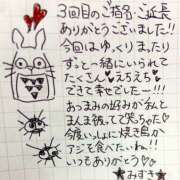 3回目のご指名・ご延長
ありがとうございました!!
今回はゆっくりまったり
ずっと一緒にいられて
たくさん♡えちえち♡
できて幸せでしたー!!!
おつまみの好みがんね
まんま彼って笑っちゃた
今度いっしょに焼き鳥か
アジを食べたいね!!
いつもありがとう
★みずき★